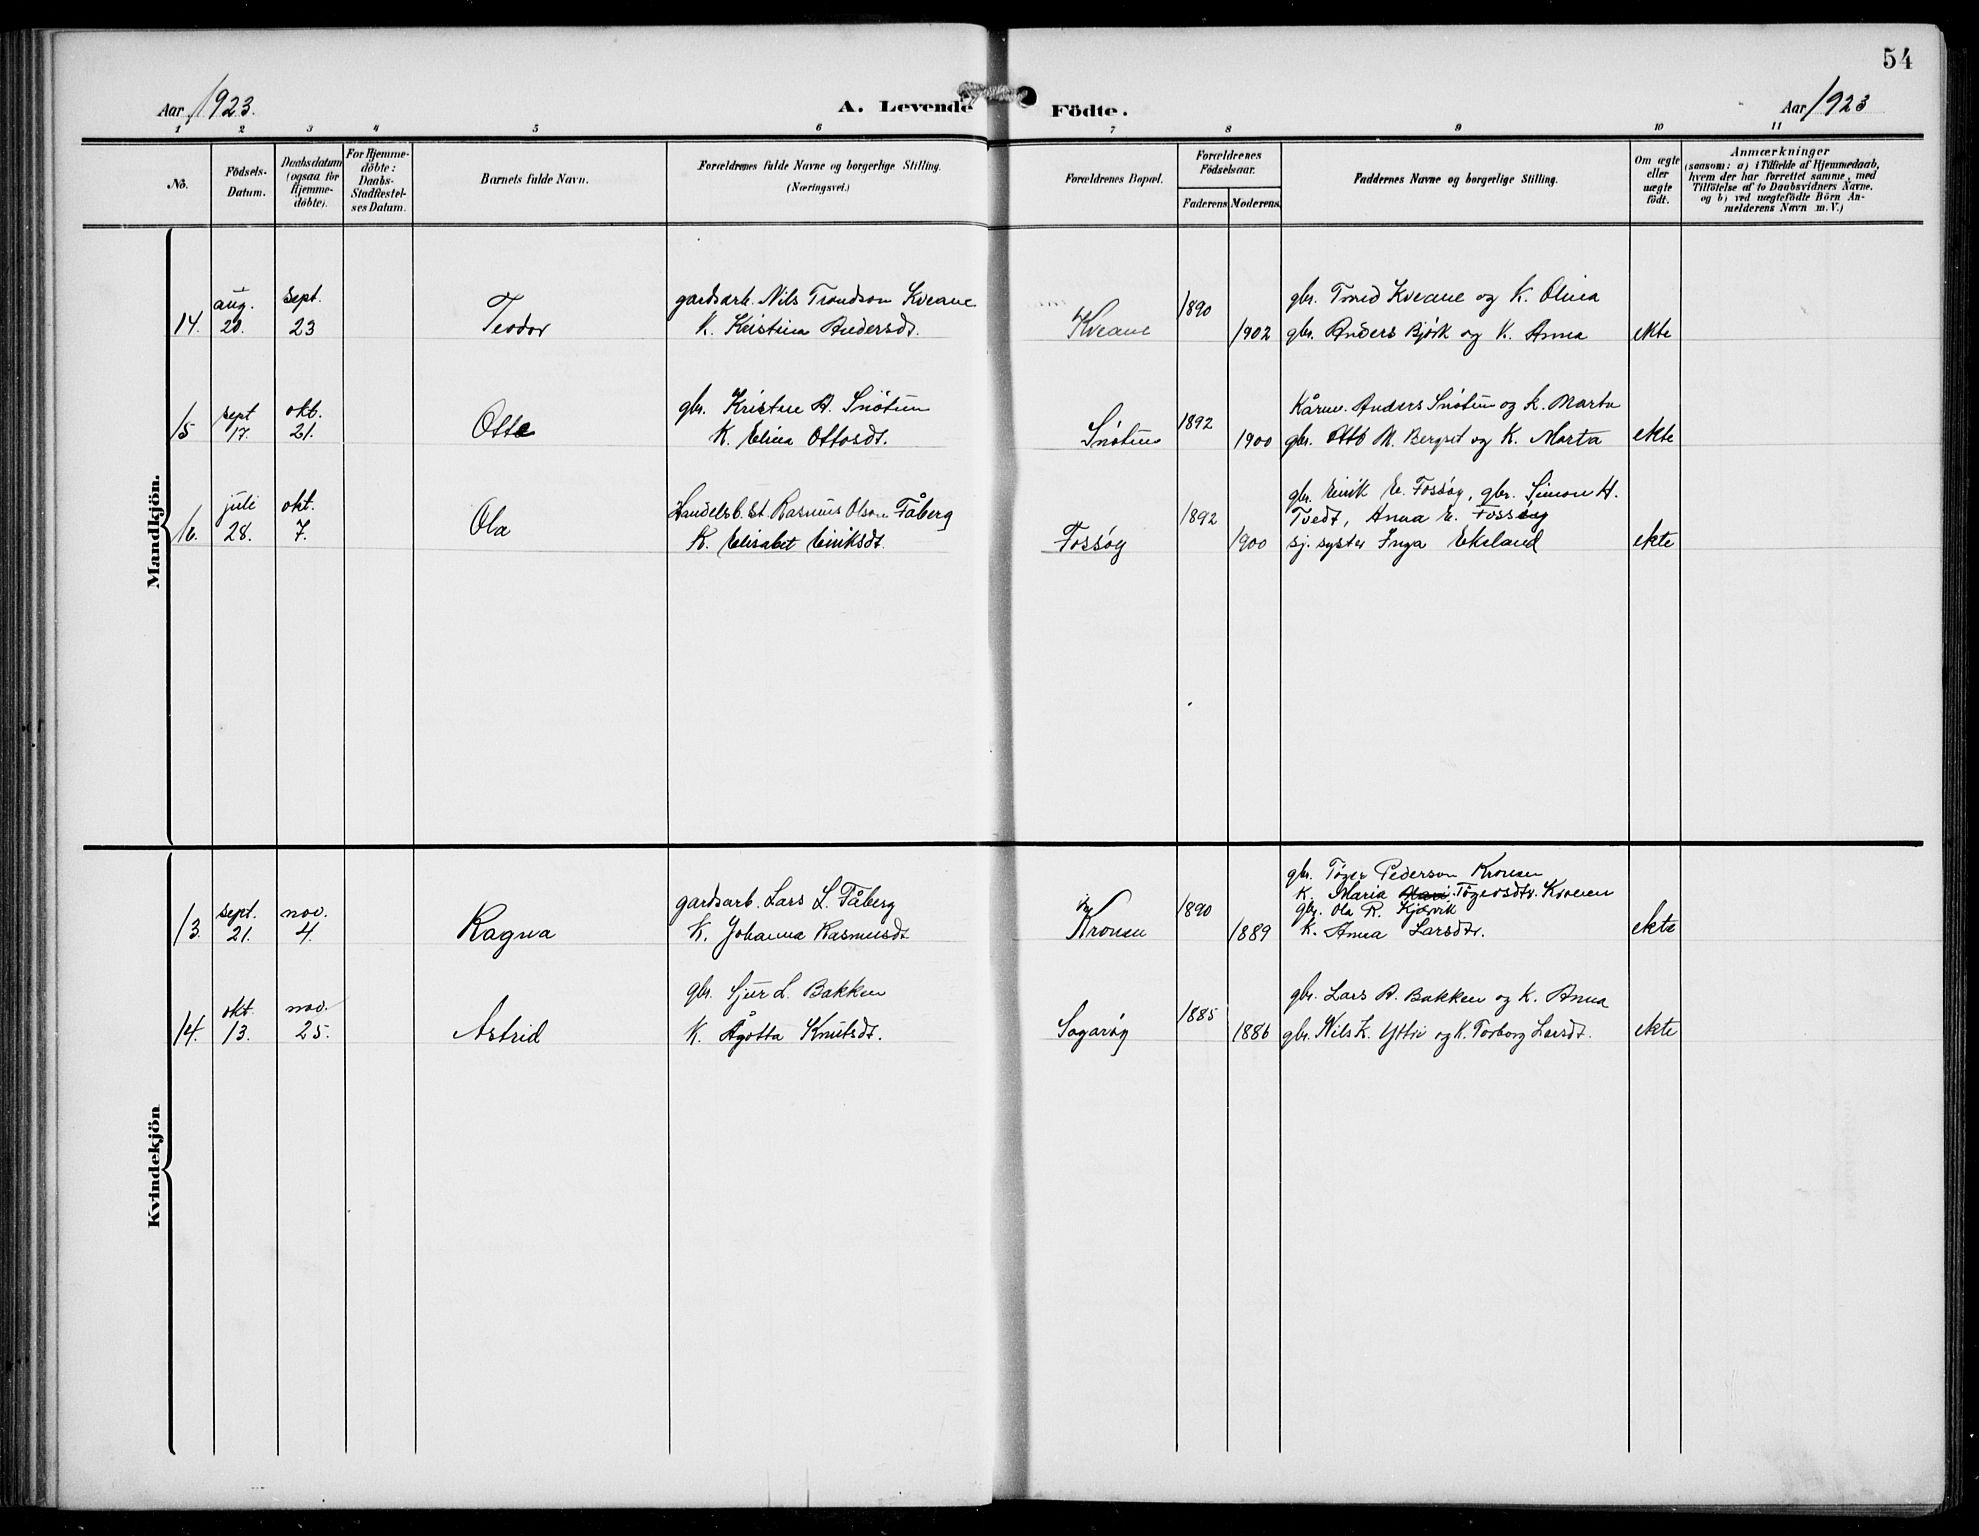 54
Aar 1923.
A. Levende Födte.
Aar 1923
1 2 3 4 5 6 7 8 9 10 11
No.
Födsels-
Datum.
Daabsdatum
(ogsaa for
Hjemme-
döbte).
For Hjemme-
döbte:
Daabs-
Stadfæstel-
ses Datum.
Barnets fulde Navn.
Forældrenes fulde Navne og borgerlige Stilling.
(Næringsvei.)
Forældrenes Bopæl.
Forældrenes
Födselsaar.
Faderens Moderens.
Faddernes Navne og borgerlige Stilling.
Om ægte
eller
uægte
födt.
Anmærkninger
(saasom: a) i Tilfælde af Hjemmedaab,
hvem der har forrettet samme, med
Tilföielse af to Daabsvidners Navne,
og b) ved uægtefödte Börn An-
melderens Navn m. V.)
Mandkjön.
14. aug. 20. sept. 23 Teodor
gardsarb. Nils Trondson Kveane
K. Kristina Andersdt.
Kveane 1890 1902
gbr. Trond Kveane og K. Olina
gbr. Anders Bjørk og K. Anna
ekte
15 sept 17. okt. 21. Otto
gbr. Kristen A. Snøtun
K. Elina Ottosdt.
Snøtun 1892 1900
Kårm. Anders Snøtun og K. Marta
gbr. Otto M. Bergset og K. Marta
ekte
16. juli 28. okt. 7. Ola
Handelsb.st. Rasmus Olson Fåberg
K. Elisabet Eiriksdt.
Fossøy 1892 1900
gbr. Eirik E. Fossøy, gbr. Simon H.
Tvedt, Anna E. Fossøy
sj. syster Inga Ekeland
ekte
Kvindekjön
13. sept. 21. nov. 4. Ragna
gardsarb. Lars L. Fåberg
K. Johanna Rasmusdt
Kronen 1890 1889
gbr. Tøger Pederson Kronen
K. Maria Tøgersdtr. Kronen
gbr. Ola R. Kjervik
K. Anna Larsdtr.
ekte
14. okt. 13. nov. 25. Astrid
gbr. Sjur L. Bakken
K. Ågotta Knutsdt.
Sagarøy 1885 1886
gbr. Lars A. Bakken og K. Anna
gbr. Nils K. Yttri og K. Torborg Larsdt.
ekte